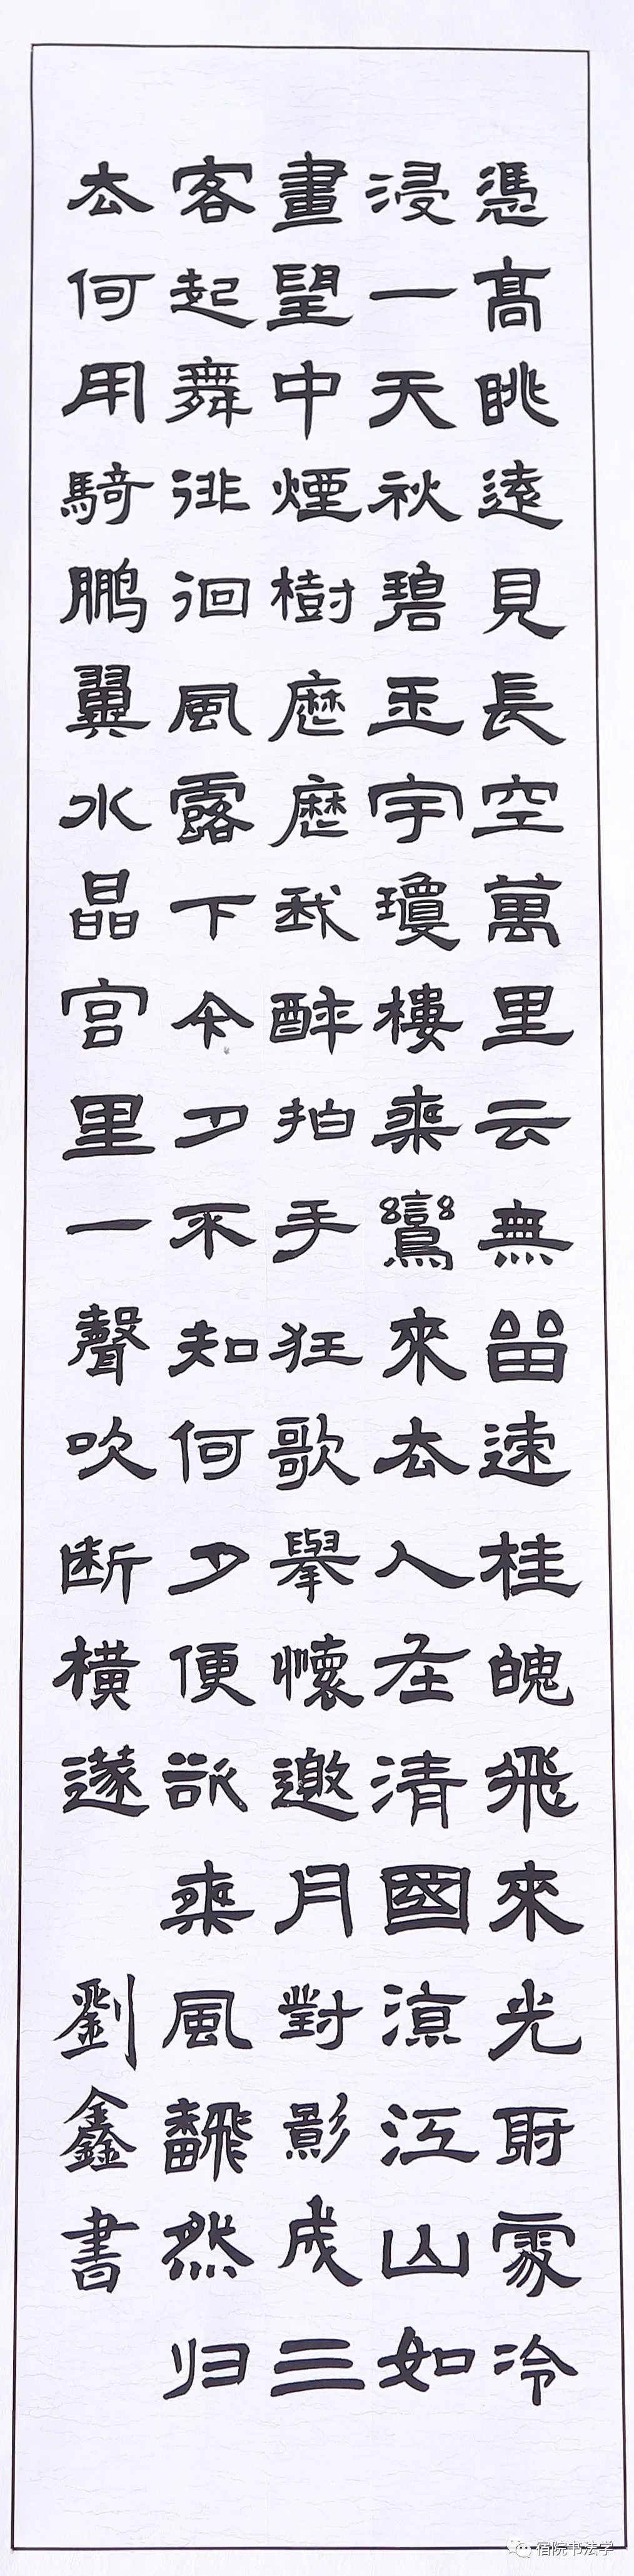 憑高眺遠見長空萬里云無留速桂魄飛來光射處冷
浸一天秋碧玉宇瓊樓乘鸞來去人在清國涼江山如
畫望中煙樹歷歷我醉拍手狂歌舉懷邀月對影成三
客起舞徘徊風露下今夕不知何夕便欲乘風飜然归
去何用騎鵬翼水晶宮里一聲吹断橫遂
劉鑫書
宿院书法学